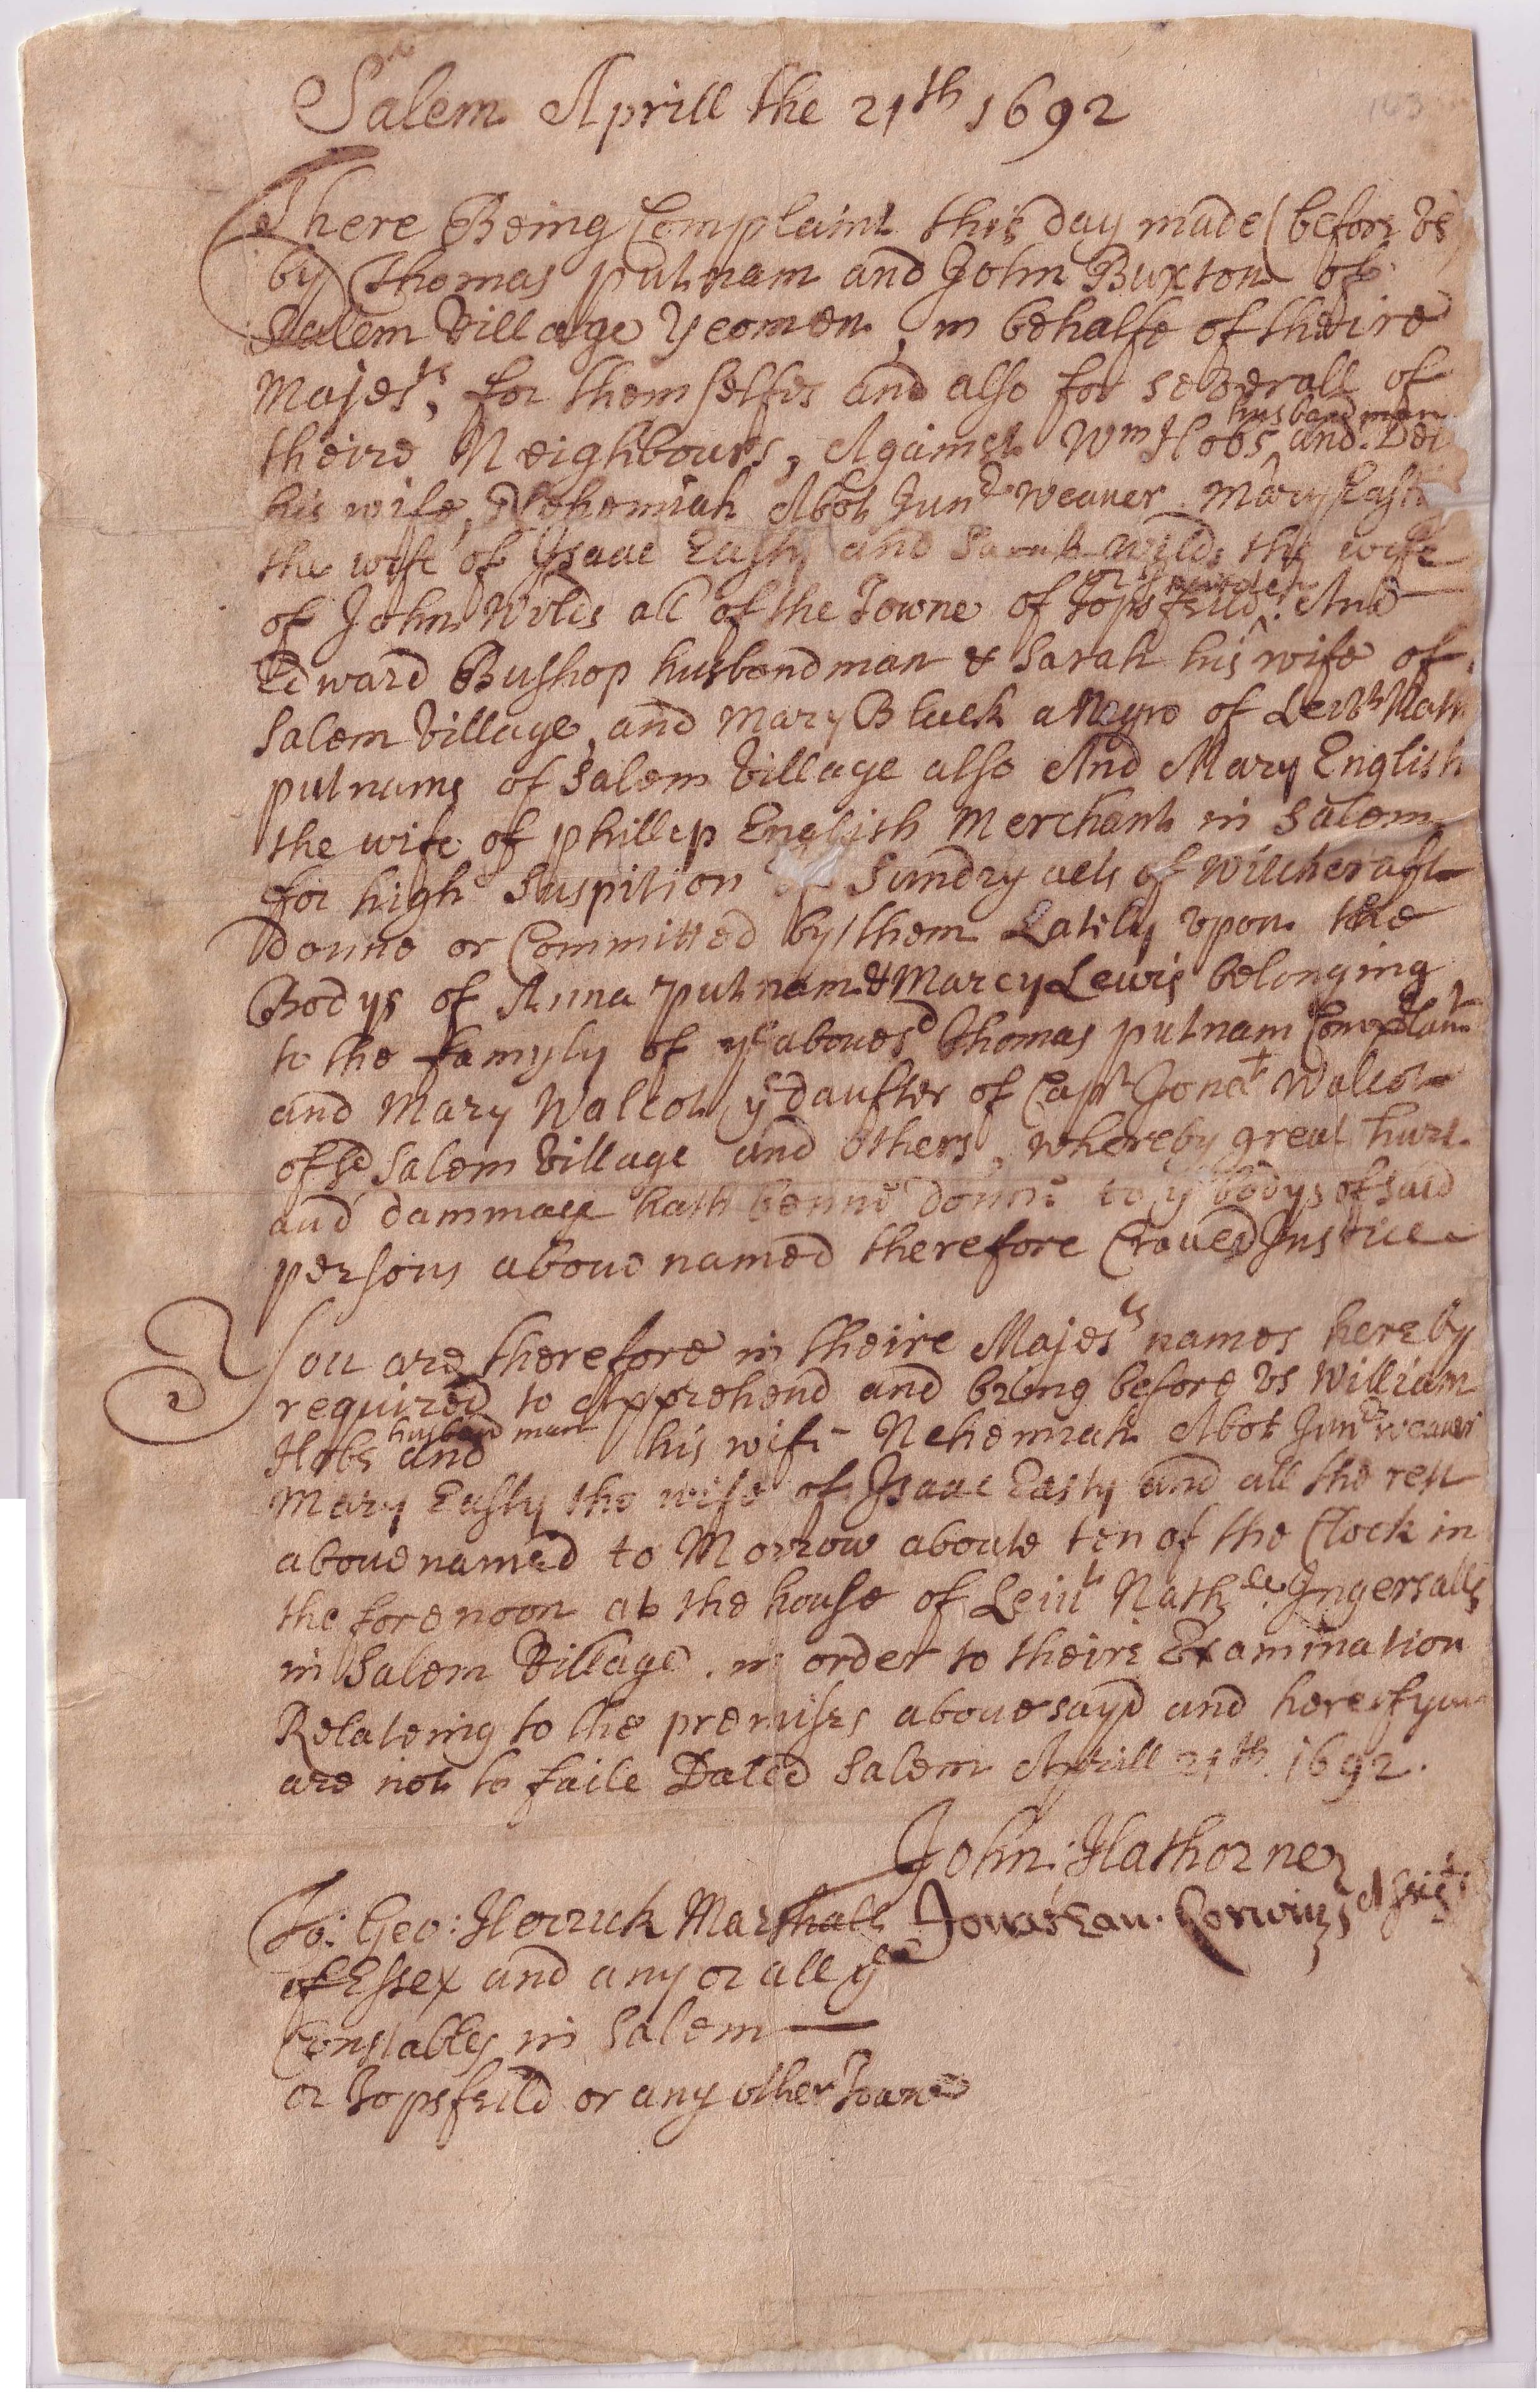 Salem Aprill the 21th 1692
There Being Complaint this day made (before us)
by Thomas putnam and John Buxton of
Salem Village Yeomen, in behalfe of theire
Majests, for themselfes and also for severall of
theire Neighbours, Against Wm Hobs husbandman and Del
his wife, Nehemiah Abot Junr weaver, Mary Easty
the wife of Isaac Easty and Sarah Wilds the wife
of John Wilds all of the Towne of Topsfeild, or Ipswitch And
Edward Bushop husbandman & Sarah his wife of
Salem Village, and Mary Black a Negro of Leut Nath
putnams of Salem Village also And Mary English
the wife of phillip English Merchant in Salem
for high Suspition of Sundry acts of Witchcraft
donne or Committed by them Lately upon the
Bodys of Anna putnam & Marcy Lewis belonging
to the famyly of ye abouesd Thomas putnam Complaint
and Mary Walcot ye daufter of Capt Jonat Walcot
of sd Salem Village and others, whereby great hurt
and dammage hath benne donne to ye bodys of said
persons aboue named therefore Craued Justice
You are therefore in theire Majests names hereby
required to Apprehend and bring before us William
Hobs husbandman and his wife Nehemiah Abot Junr weauer
Mary Easty the wife of Isaac Easty and all the rest
abouenamed to Morrow aboute ten of the Clock in
the forenoon at the house of Leiut Nathll Ingersalls
in Salem Village. in order to theire Examination
Relateing to the premises abouesayd and hereof you
are not to faile Dated Salem Aprill 21th 1692.
John. Hathorne
To: Geo: Herrick Marshall Jonathan. Corwin Assists
of Essex and any or all ye
Constables in Salem
or Topsfeild or any other Towne